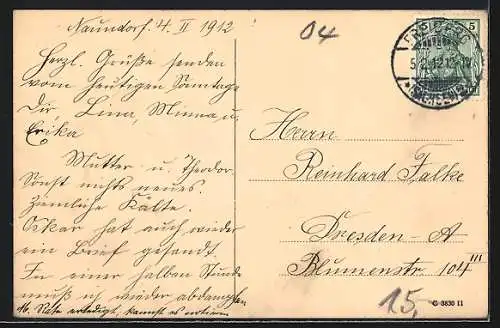 Naundorf. 4. II 1912
Herzl. Grüße senden
vom heutigen Sonntage
Dir Lina, Minna u.
Erika
Mutter u. Theodor.
Sonst nichts neues.
Ziemliche Kälte.
Oskar hat auch wieder
ein Brief gesandt.
In einer halben Stunde
muß ich wieder abdampfen
erledigt, kannst es notieren
04
5
5.2.12.12-1N.
Herrn
Reinhard Falke
Dresden-A
Blumenstr. 104 III
15.
G 3830 II